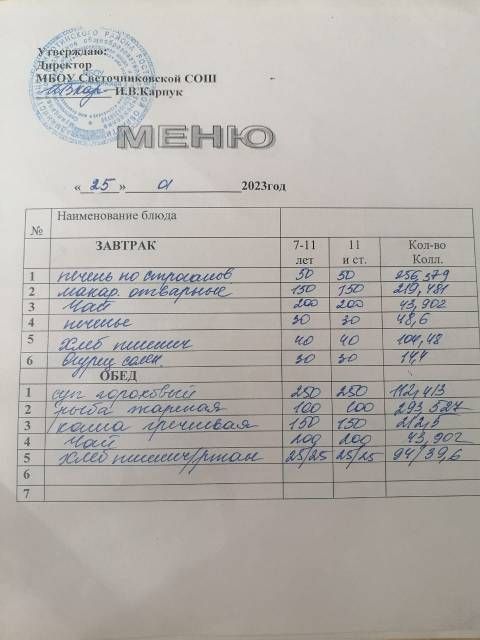 Утверждаю:
Директор
МБОУ Светочниковской СОШ
И.В.Карпук
МЕНЮ
« 25 » 01 2023год
№ Наименование блюда
ЗАВТРАК 7-11 лет 11 и ст. Кол-во Колл.
1 печень по строганов 50 50 256,379
2 макар. отварные 150 150 219,481
3 Чай 200 200 43,902
4 печенье 30 30 48,6
5 Хлеб пшенич 40 40 104,48
6 Огурец солен. 30 30 14,4
ОБЕД
1 суп гороховый 250 250 112,413
2 рыба жареная 100 100 293,527
3 каша гречневая 150 150 212,5
4 Чай 200 200 43,902
5 Хлеб пшенич/ржан 25/25 25/25 94/39,6
6
7